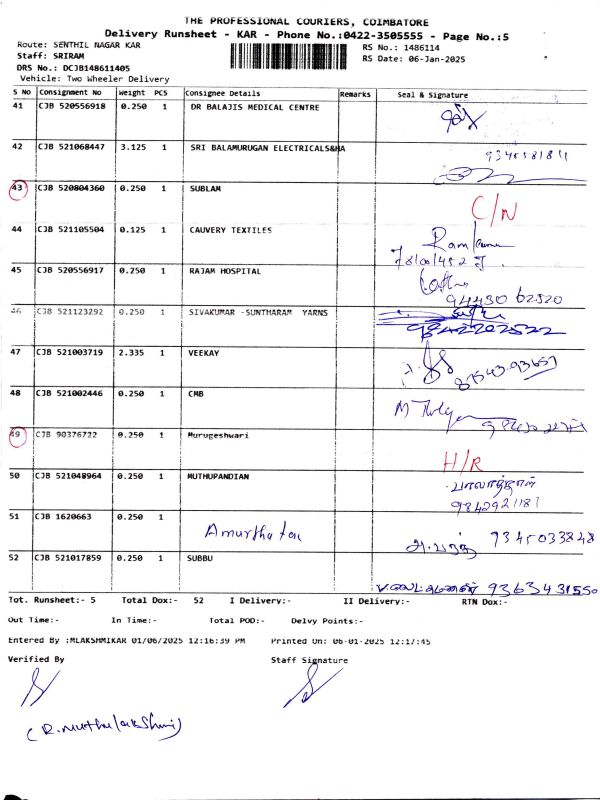 THE PROFESSIONAL COURIERS, COIMBATORE
Delivery Runsheet - KAR - Phone No.:0422-3505555 - Page No.:5
Route: SENTHIL NAGAR KAR
RS No.: 1486114
Staff: SRIRAM
RS Date: 06-Jan-2025
DRS No.: DCJB148611405
Vehicle: Two Wheeler Delivery
S No Consignment No Weight PCS Consignee Details Remarks Seal & Signature
41 CJB 520556918 0.250 1 DR BALAJIS MEDICAL CENTRE
42 CJB 521068447 3.125 1 SRI BALAMURUGAN ELECTRICALS&HA
43 CJB 520804360 0.250 1 SUBLAM C/N
44 CJB 521105504 0.125 1 CAUVERY TEXTILES Ramkumar
45 CJB 520556917 0.250 1 RAJAM HOSPITAL
94430 62520
46 CJB 521123292 0.250 1 SIVAKUMAR -SUNTHARAM YARNS
9842202522
47 CJB 521003719 2.335 1 VEEKAY
87543-93657
48 CJB 521002446 0.250 1 CMB
49 CJB 90376722 0.250 1 Murugeshwari H/R
50 CJB 521048964 0.250 1 MUTHUPANDIAN
9842921187
51 CJB 1620663 0.250 1 9345033848
52 CJB 521017859 0.250 1 SUBBU
9363431550
Tot. Runsheet:- 5 Total Dox:- 52 I Delivery:- II Delivery:- RTN Dox:-
Out Time:- In Time:- Total POD:- Delvy Points:-
Entered By :MLAKSHMIKAR 01/06/2025 12:16:39 PM Printed On: 06-01-2025 12:17:45
Verified By Staff Signature
(R.Muthulakshmi)